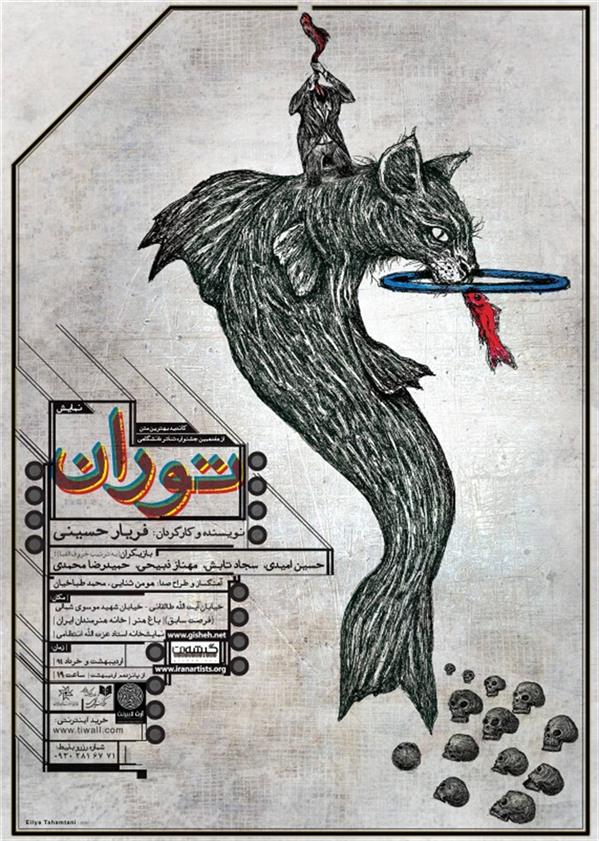 نمایش
کاندید بهترین متن
از هفدهمین جشنواره تئاتر دانشگاهی
توران
نویسنده و کارگردان: فریار حسینی
بازیگران (به ترتیب حروف الفبا):
حسین امیدی، سجاد تابش، مهناز ذبیحی، حمیدرضا محمدی
آهنگساز و طراح صدا: هومن ثنایی، محمد طباخیان
مکان |
خیابان آیت الله طالقانی - خیابان شهید موسوی شمالی
(فرصت سابق)| باغ هنر | خانه هنرمندان ایران |
نمایشخانه استاد عزت الله انتظامی |
www.gisheh.net
گیشه‌نت
www.iranartists.org
زمان |
اردیبهشت و خرداد ۹٤
از پانزدهم اردیبهشت | ساعت ۱۹ |
خرید اینترنتی:
www.tiwall.com
شماره رزرو بلیط:
۰۹۳۰ ۲۸۱ ۶۷ ۷۱
Eilya Tahamtani